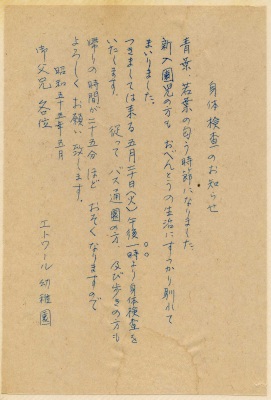 身体検査のお知らせ
青葉、若葉の匂う時節になりました。
新入園児の方もおべんとうの生活にすっかり馴れて
まいりました。
つきましては来る五月二十日(火)午後一時より身体検査を
いたします。 従って バス通園の方 及び歩きの方も
帰りの時間が二十五分ほど おそく なりますので
よろしくお願い致します。
昭和五十五年五月
エトワール幼稚園
御父兄各位